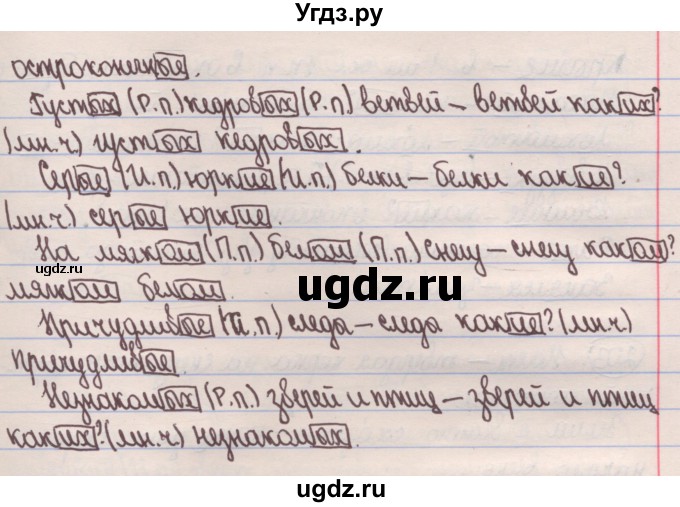 Угдз.ру
остроконечные.
Густых (Р.п.) кедровых (Р.п.) ветвей – ветвей каких?
(мн.ч.) густых кедровых.
Серые (И.п.) юркие (И.п.) белки – белки какие?
(мн.ч.) серые юркие.
На мягком (П.п.) белом (П.п.) снегу – снегу каком?
мягком белом.
Причудливые (И.п.) следы – следы какие? (мн.ч.)
причудливые.
Незнакомых (Р.п.) зверей и птиц – зверей и птиц
каких? (мн.ч.) незнакомых.
ugdz.ru
ugdz.ru
ugdz.ru
ugdz.ru
ugdz.ru